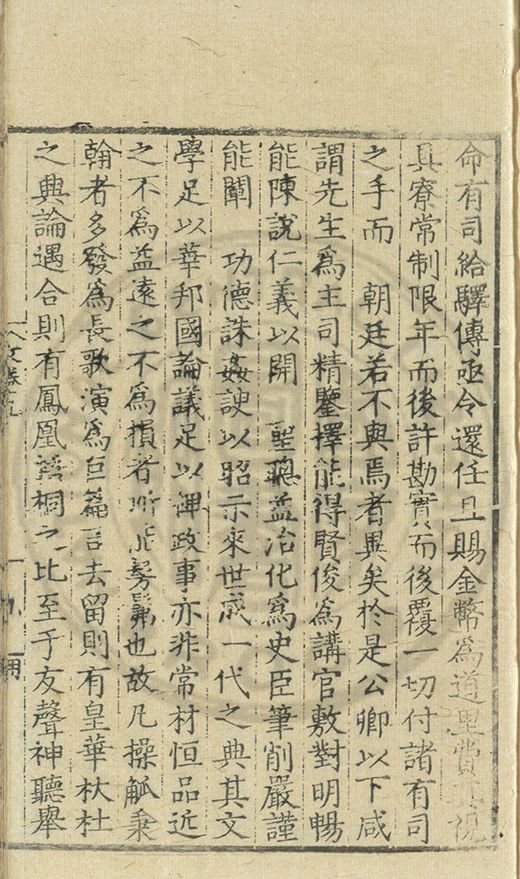 命有司給驛傳亟令還任且賜金幣為道里費其視
具寮常制限年而後許勘實而後覆一切付諸有司
之手而　朝廷若不與焉者異矣於是公卿以下咸
謂先生爲主司精鑒擇能得賢俊爲講官敷對明暢
能陳說仁義以開　聖聰益治化爲史臣筆削嚴謹
能闡　功德誅姦諛以昭示來世成一代之典其文
學足以華邦國論議足以裨政事亦非常材恒品近
之不爲益遠之不爲損者所能髣髴也故凡操觚秉
翰者多發爲長歌演爲巨篇言去留則有皇華杕杜
之典論遇合則有鳳凰梧桐之比至于友聲神聽舉